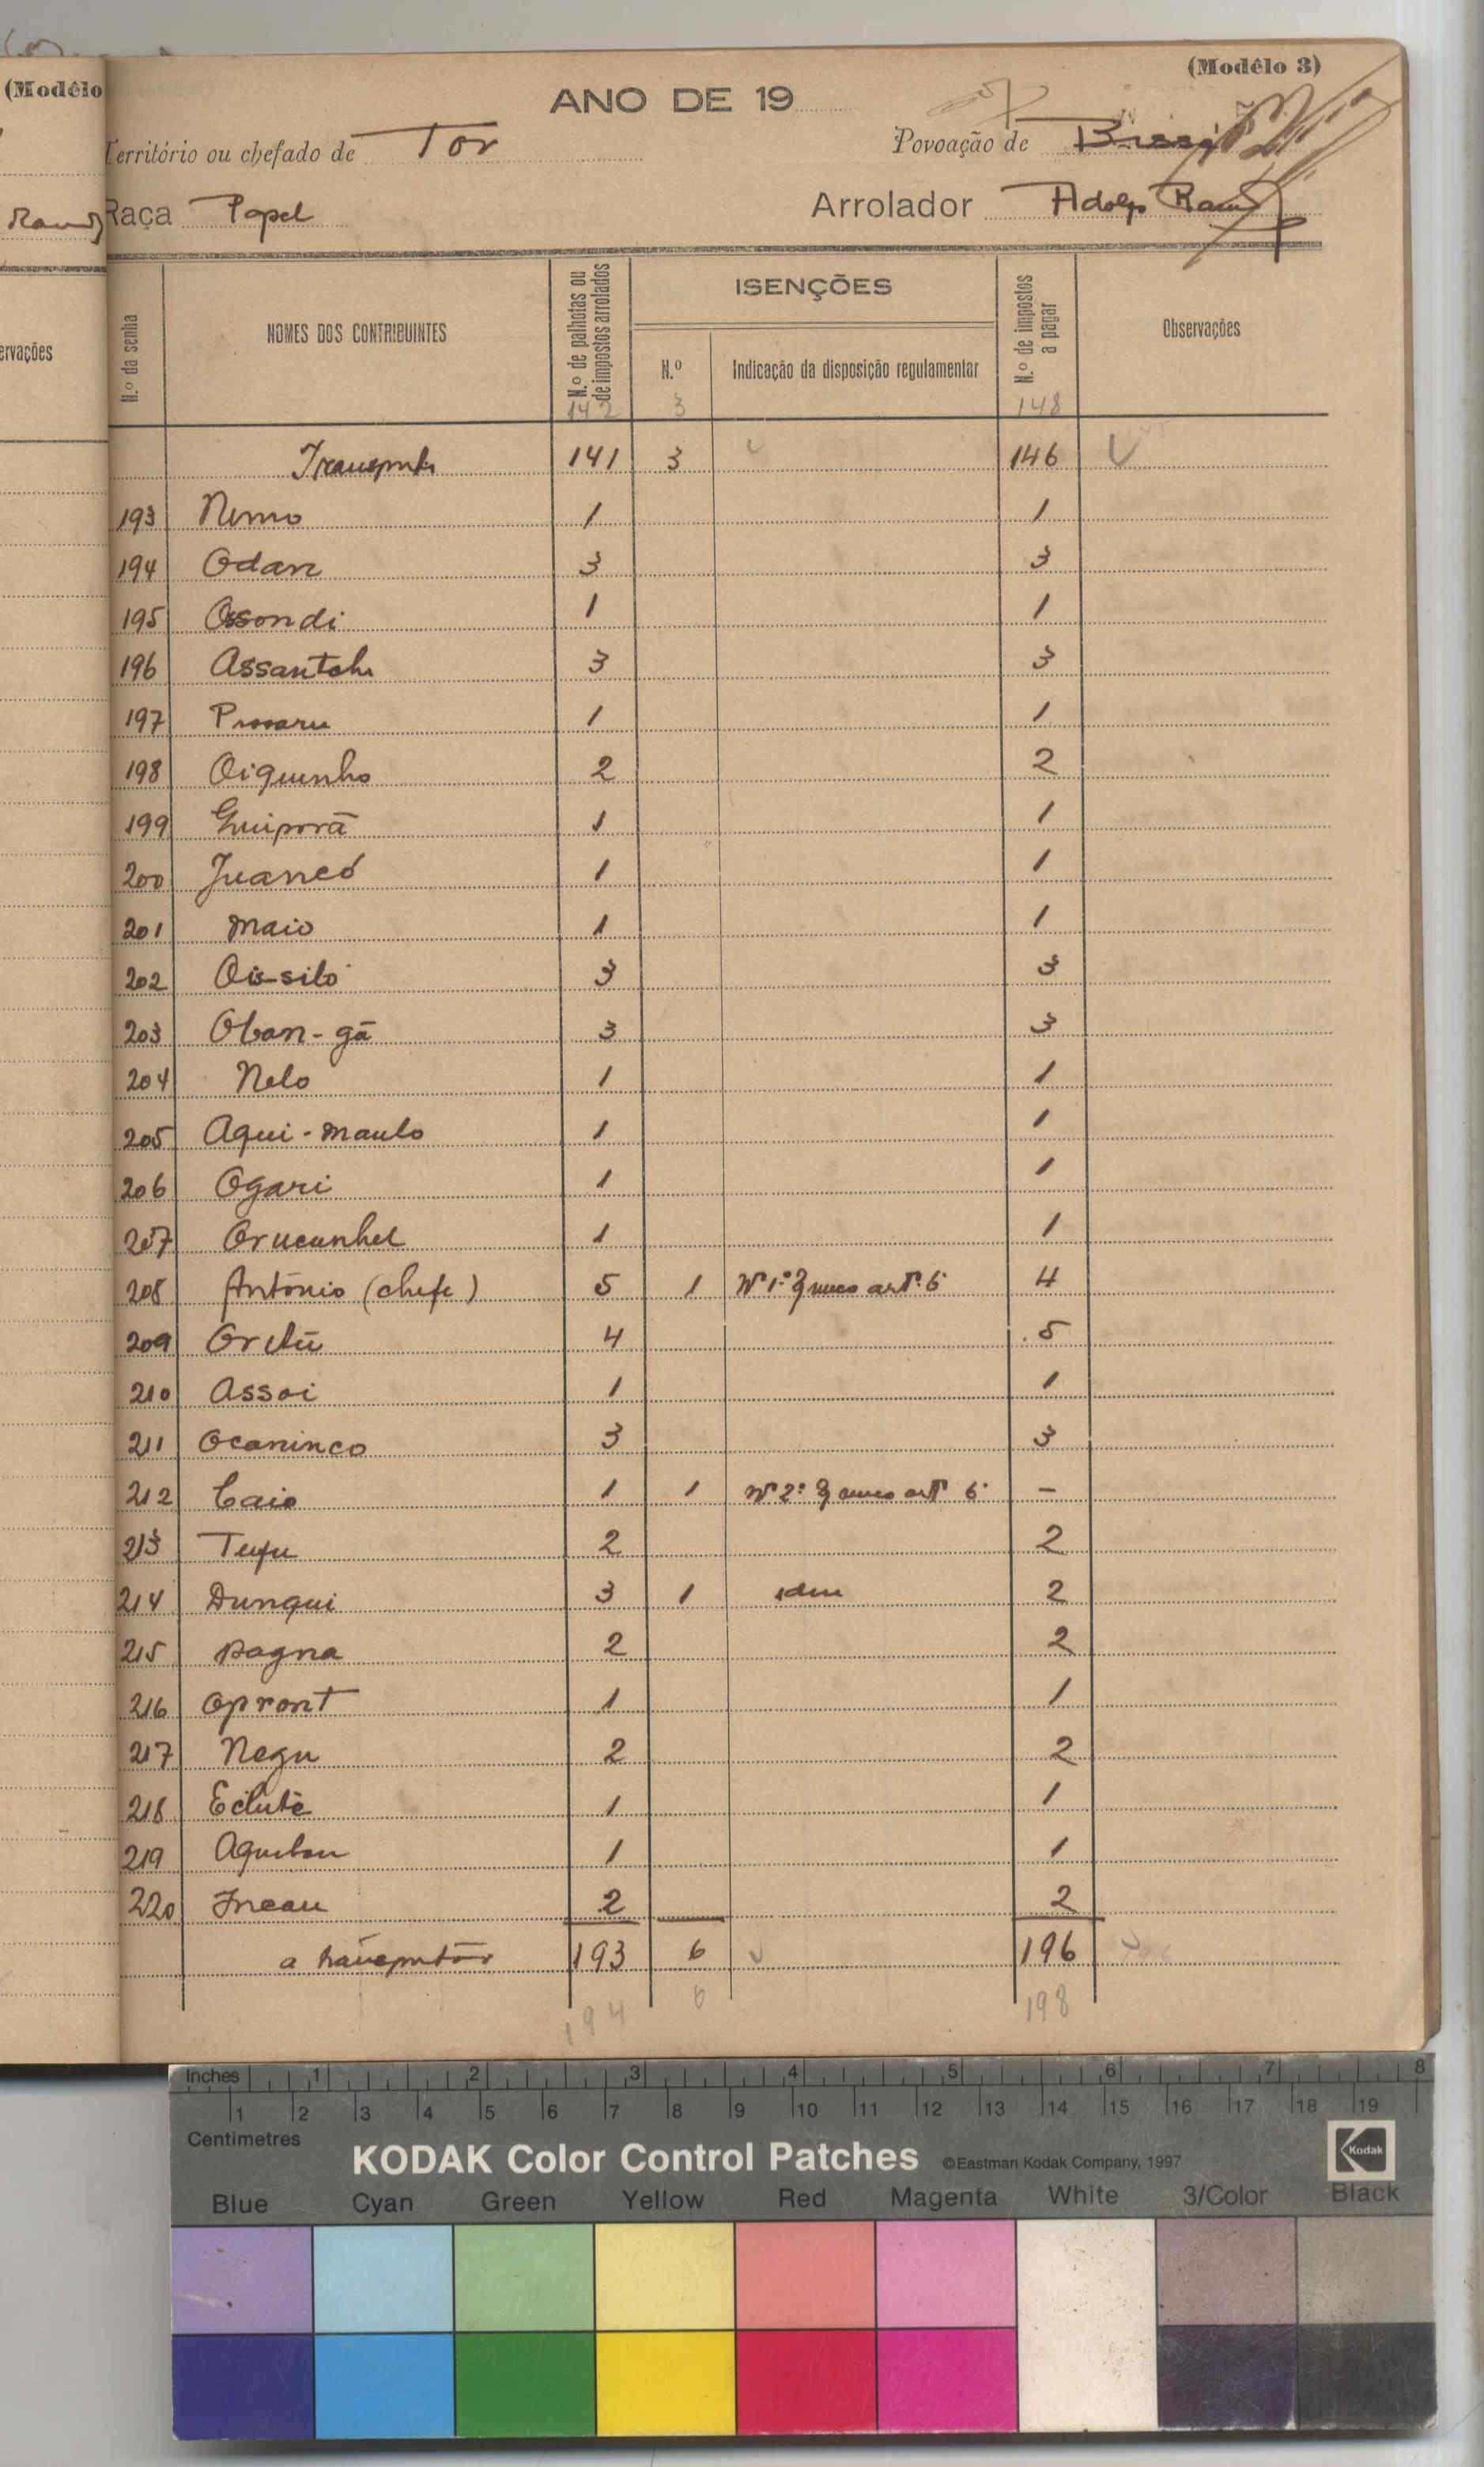 (Modêlo 3)
(Modêlo
ANO DE 19
Território ou chefado de Tor
Povoação de
Raça Papel
Arrolador Adolfo Ramos
N.º da senha
NOMES DOS CONTRIBUINTES
N.º de palhotas ou de impostos arrolados
ISENÇÕES
N.º
Indicação da disposição regulamentar
N.º de impostos a pagar
Observações
ervações
142 3 148
Transporte 141 3 146
193 Nemo 1 1
194 Odan 3 3
195 Ossondi 1 1
196 Assantch 3 3
197 1 1
198 Oiquinho 2 2
199 Guiporã 1 1
200 Juancó 1 1
201 Maio 1 1
202 Ois-siló 3 3
203 Oban-gã 3 3
204 Nelo 1 1
205 Aqui-maulo 1 1
206 Ogari 1 1
207 Orucunhel 1 1
208 António (chefe) 5 1 Nº 1º § unico artº 6º 4
209 4 5
210 Assoi 1 1
211 Ocaninco 3 3
212 Caio 1 1 Nº 2º § unico artº 6º -
213 2 2
214 Dunqui 3 1 idem 2
215 Dagna 2 2
216 Opront 1 1
217 Negu 2 2
218 Eclutè 1 1
219 1 1
220 Incau 2 2
a transportar 193 6 196
194 6 198
Inches 1 2 3 4 5 6 7 8
1 2 3 4 5 6 7 8 9 10 11 12 13 14 15 16 17 18 19
Centimetres
KODAK Color Control Patches ©Eastman Kodak Company, 1997 Kodak
Blue Cyan Green Yellow Red Magenta White 3/Color Black